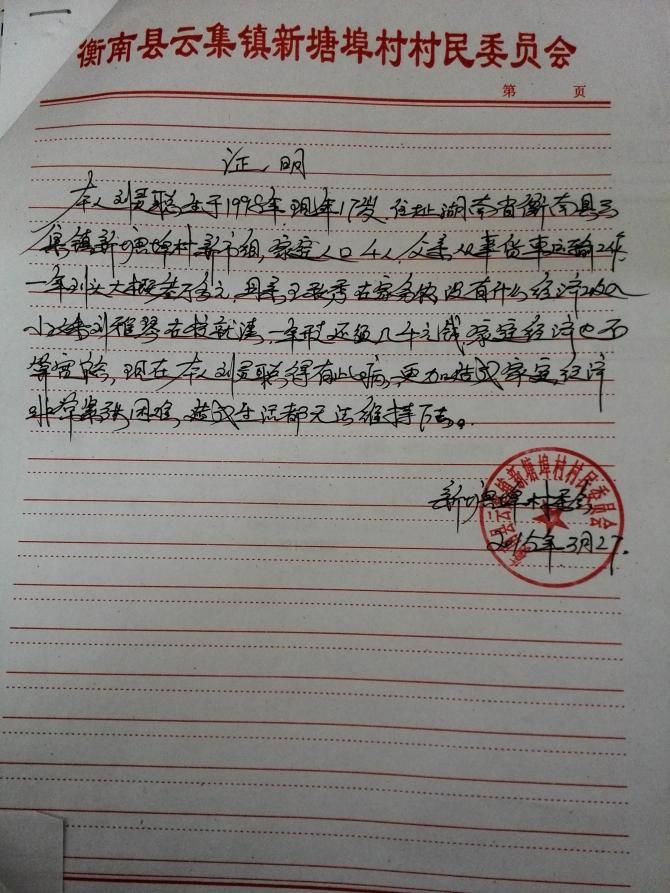 衡南县云集镇新塘埠村村民委员会
第 页
证明
本人刘 聪生于1998年现年17岁.住址湖南省衡南县云
集镇新塘埠村新市组,家庭人口4人,父亲从事货车运输工作,
一年到头大概 万多元,母亲王 秀在家务农,没有什么经济收入
小妹刘雅琴在校就读,一年 还须几千元钱,家庭经济也不
算富裕,现在本人刘 聪得有此病,更加造成家庭经济
非常紧张困难,造成生活都无法维持下去。
新塘埠村委会
2015年3月27.
衡南县云集镇新塘埠村村民委员会